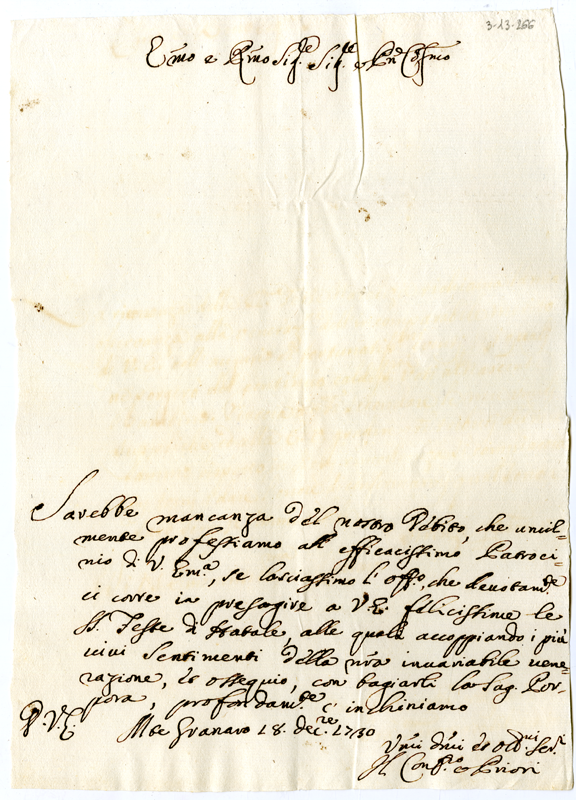 3-13-266
Em̃o e Rm̃o Sig.re Sig.re e Prñ Col̃mo
Sarebbe mancanza del nostro Debito, che umil=
mente professiamo all' efficacissimo Patroci=
nio di V. Em.a, se lasciassimo l' off.o, che devotam.te
ci corre in presagire a V. E. felicissime le
SS. Feste di Natale, alle quali accoppiando i più
vivi sentimenti della nr̃a invariabile vene=
razione, et ossequio, con bagiarli la Sag. Por=
pora, profondam.te c' inchiniamo
D. V. E.
Mte Granaro 18. dec.re 1730
Um̃i dm̃i et Obb.mi Ser.i
Il Con.so e Priori